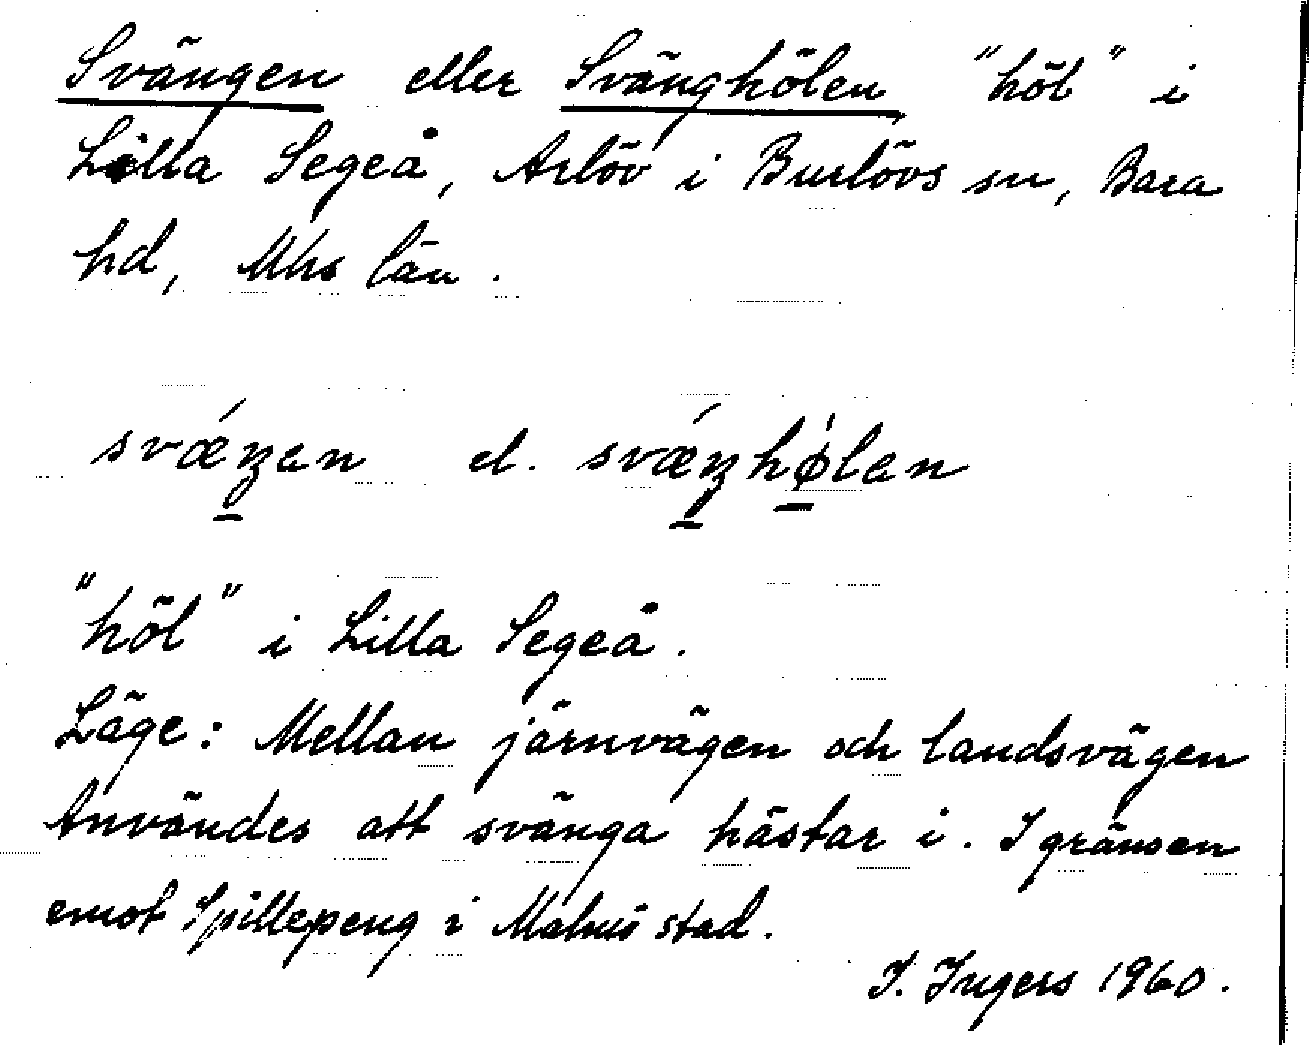 Svängen eller Svänghölen "höl" i
Lilla Segeå, Arlöv i Burlövs sn, Bara
hd, Mhs län.
svǽŋan el. svǽŋhø̀lan
"höl" i Lilla Segeå.
Läge: Mellan järnvägen och landsvägen
Användes att svänga hästar i. I gränsen
emot Spillepeng i Malmö stad.
I. Ingers 1960.